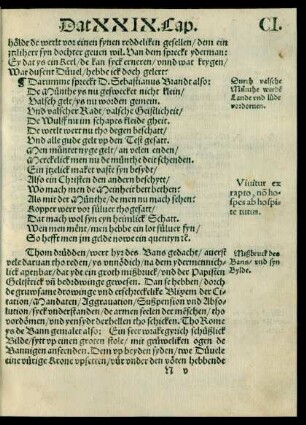 Dat XXIX. Cap. CI.
hölde de werlt vor einen fynen reddeliken gesellen / dem ein
yslikert syn dochter geuen wil. Van dem spreckt yderman:
Ey dat ys ein Kerl / de kan syck erneren / vnnd wat krygen /
Wat dusent Düuel / hebbe ick doch gelert?
¶ Darumme spreckt D. Sebastianus Brandt also:
De Münthe ys nu geswecket nicht klein /
Valsch gelt / ys nu worden gemein.
Vnd valscher Radt / valsche Geistlicheit /
De Wulff nu im schapes kleide gheit.
De werlt wert nu tho degen beschatt /
Vnd alle gude gelt vp den Test gesatt.
Men münter y de gelt / an velen enden /
Men schrecklick men nu de münthe deit schenden.
Ein yzelick maket vaste syn beyde /
Also ein Christen den andern beschyt /
Wo mach men de Meinheit bett bethen?
Als mit der Münthe / de men nu mach sehen?
Kopper wert vor süluer tho gesatt /
Dat mach wol syn eyn heimlick Schatt.
Wen men mênt / men hebbe ein lot süluer syn /
So hefft men jm gelde nowe ein quentyn re.
Dorch valsche Münthe werde Lande end lüde vordoruen.
Viuitur ex rapto, nõ hospes ab hospite tutus.
Thom drüdden / wert hyr des Bans gedacht / auerst
vele daruan tho reden / ys vnnödich / na dem ydermennichlick
apenbar / dat yde ein groth mißbruck / vnd der Papisten
Gelstrick vñ bedrövinge gewesen. Dan se hebben / dorch
de gruwsame drowinge vnd erschreckelike Blixem der Citation /
Mandaten / Aggrauation / Suspension vnd Absolution /
syck vnderstanden / de armen seelen der mêschen / tho
vordömen / vnd vensyde derhellen tho schicken. Tho Rome
ys de Bann gemalet also: Ein seer wakrgyrich schüßlick
Bilde / sytt vp einen groten stole / mit grüweliken ogen de
Bannigen anseende. Dem vp beyden syden / twe Düuele
eine vürige Krone vpsetten / vñ vnder den vöten hebbende
Mißbruck des Bans / vnd syn Bylde.
N v